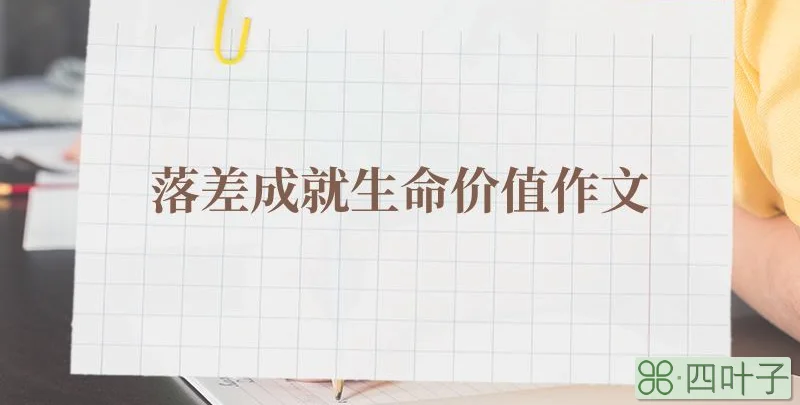 落差成就生命价值作文
四叶子